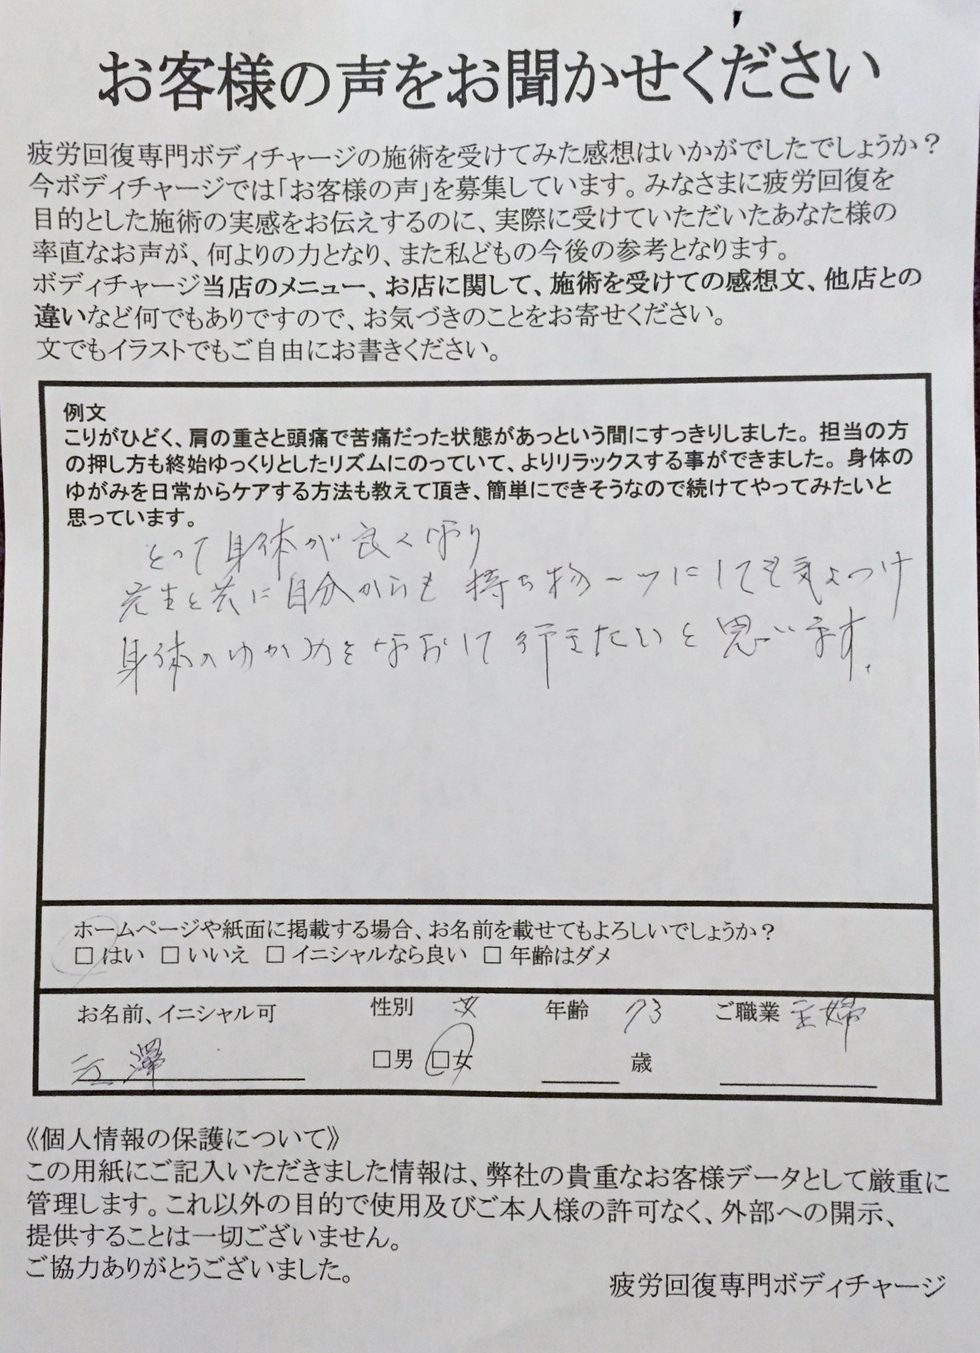 お客様の声をお聞かせください
疲労回復専門ボディチャージの施術を受けてみた感想はいかがでしたでしょうか？
今ボディチャージでは「お客様の声」を募集しています。みなさまに疲労回復を
目的とした施術の実感をお伝えするのに、実際に受けていただいたあなた様の
率直なお声が、何よりの力となり、また私どもの今後の参考となります。
ボディチャージ当店のメニュー、お店に関して、施術を受けての感想文、他店との
違いなど何でもありですので、お気づきのことをお寄せください。
文でもイラストでもご自由にお書きください。
例文
こりがひどく、肩の重さと頭痛で苦痛だった状態があっという間にすっきりしました。担当の方
の押し方も終始ゆっくりとしたリズムにのっていて、よりリラックスする事ができました。身体の
ゆがみを日常からケアする方法も教えて頂き、簡単にできそうなので続けてやってみたいと
思っています。
とって身体が良くなり
先生と共に自分からも持ち物一ツにしても気よつけ
身体のゆがみをなおして行きたいと思います。
ホームページや紙面に掲載する場合、お名前を載せてもよろしいでしょうか？
□ はい □ いいえ □ イニシャルなら良い □ 年齢はダメ
お名前、イニシャル可 性別 女 年齢 73 ご職業 主婦
澤 □男 □女 歳
《個人情報の保護について》
この用紙にご記入いただきました情報は、弊社の貴重なお客様データとして厳重に
管理します。これ以外の目的で使用及びご本人様の許可なく、外部への開示、
提供することは一切ございません。
ご協力ありがとうございました。
疲労回復専門ボディチャージ